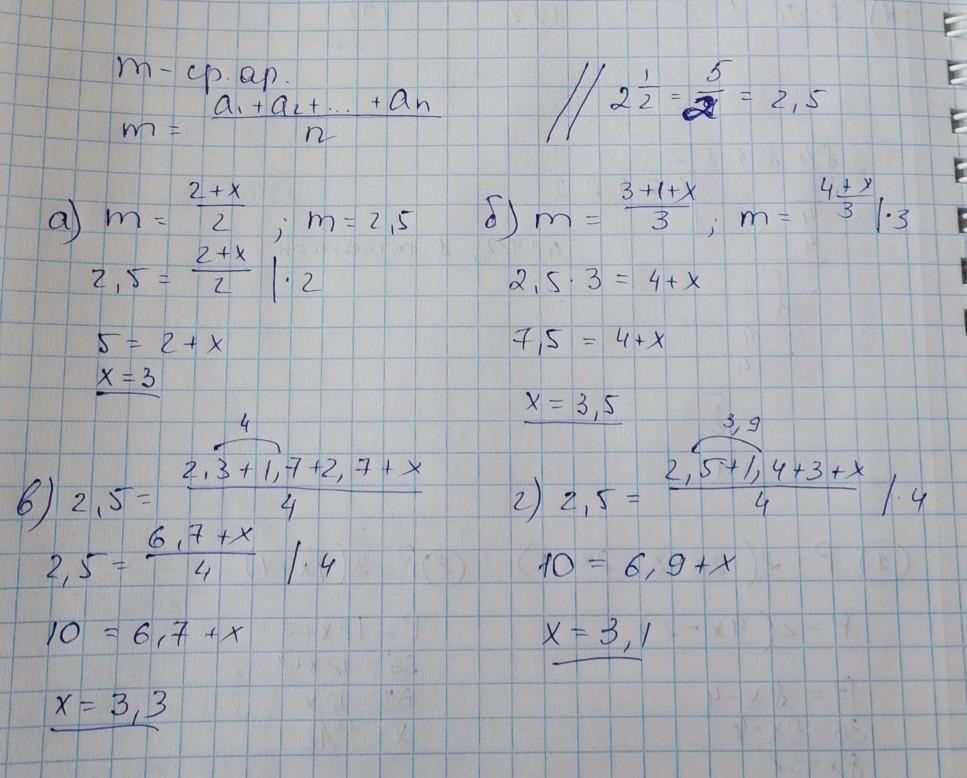 m - ср. ар.
m = (a₁ + a₂ + ... + aₙ)/n
// 2 1/2 = 5/2 = 2,5
а) m = (2+x)/2 ; m = 2,5
2,5 = (2+x)/2 |·2
5 = 2+x
x = 3
б) m = (3+1+x)/3 ; m = (4+x)/3 |·3
2,5·3 = 4+x
7,5 = 4+x
x = 3,5
4
в) 2,5 = (2,3+1,7+2,7+x)/4
2,5 = (6,7+x)/4 |·4
10 = 6,7+x
x = 3,3
3,9
г) 2,5 = (2,5+1,4+3+x)/4 |·4
10 = 6,9+x
x = 3,1